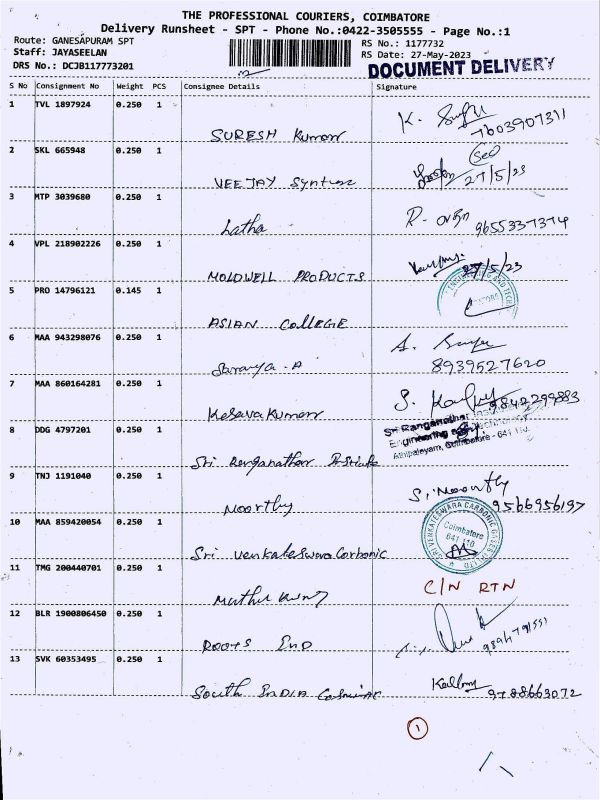 THE PROFESSIONAL COURIERS, COIMBATORE
Delivery Runsheet - SPT - Phone No.:0422-3505555 - Page No.:1
Route: GANESAPURAM SPT
Staff: JAYASEELAN
DRS No.: DCJB117773201
RS No.: 1177732
RS Date: 27-May-2023
DOCUMENT DELIVERY
S No Consignment No Weight PCS Consignee Details Signature
1 TVL 1897924 0.250 1
SURESH Kumar K. 7603907311
2 SKL 665948 0.250 1
VEEJAY Syntex 27/5/23
3 MTP 3039680 0.250 1
Latha 9655337374
4 VPL 218902226 0.250 1
MOLDWELL PRODUCTS 27/5/23
5 PRO 14796121 0.145 1
ASIAN COLLEGE
ENGINEERING AND TECH
STORE
6 MAA 943298076 0.250 1
Saranya. A 8939527620
7 MAA 860164281 0.250 1
Kesava Kumar S. 9842299883
8 DDG 4797201 0.250 1
Sri Ranganathar
Sri Ranganathar Institute
Engineering and Technology
Athipalayam, Coimbatore - 641 110.
9 TNJ 1191040 0.250 1
Moorthy S. Moorthy 9566956197
10 MAA 859420054 0.250 1
Sri Venkateswara Carbonic
SRI VENKATESWARA CARBONIC GASES (P) LTD
Coimbatore
641 110
11 TMG 200440701 0.250 1
C/N RTN
12 BLR 1900806450 0.250 1
ROOTS IND
13 SVK 60353495 0.250 1
South INDIA 9788663072
1